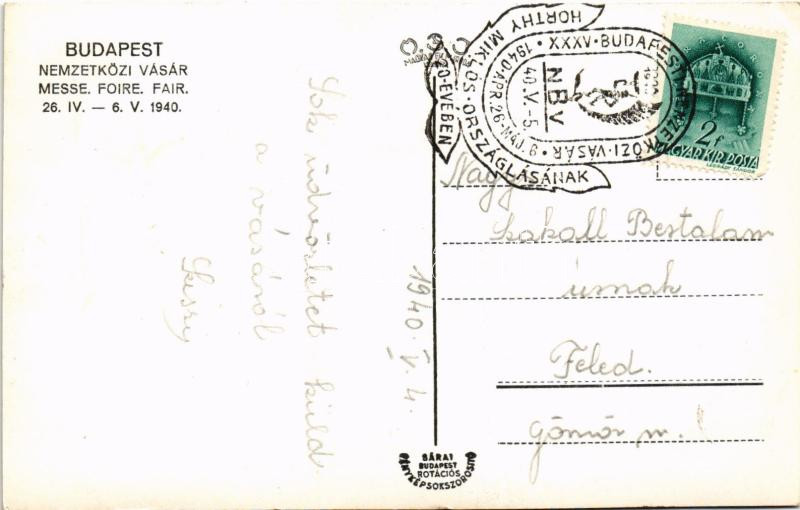 BUDAPEST
NEMZETKÖZI VÁSÁR
MESSE. FOIRE. FAIR.
26. IV. — 6. V. 1940.
Sok üdvözletet küld
a vásáról
1940. V. 4.
HORTHY MIKLÓS · ORSZÁGLÁSÁNAK
20-ÉVÉBEN
XXXV · BUDAPESTI NEMZETKÖZI · VÁSÁR
1940 · ÁPR. 26 - MÁJ. 6
40. V. -5.
NBV
2f
MAGYAR KIR. POSTA
LÉGRÁDY SÁNDOR
Nagys
Szakall Bertalan
úrnak
Feled.
Gömör m.
BÁRÁT
BUDAPEST
ROTÁCIÓS
FÉNYKÉPSOKSZOROSÍTÓ